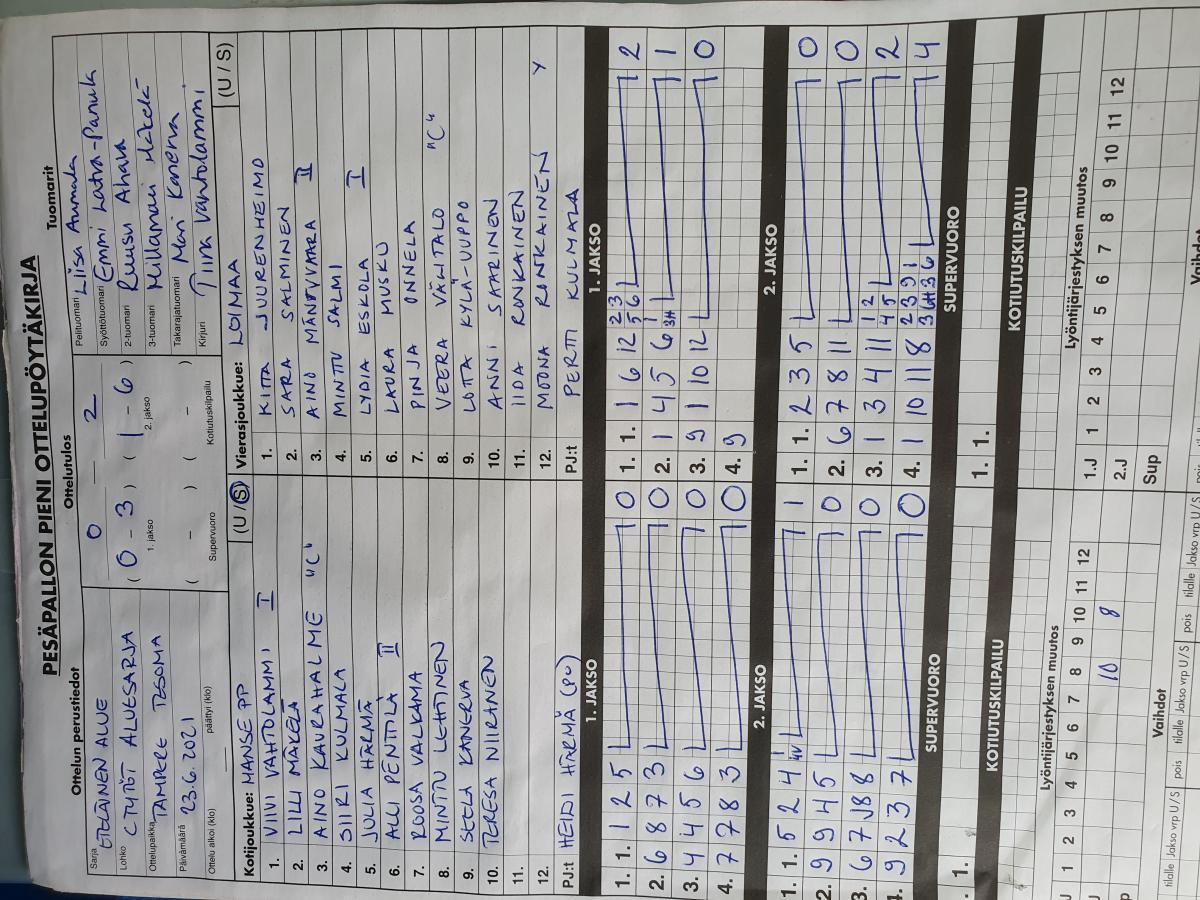 PESÄPALLON PIENI OTTELUPÖYTÄKIRJA
Ottelun perustiedot
Sarja ETELÄINEN ALUE
Lohko C TYTÖT ALUESARJA
Ottelupaikka TAMPERE TESOMA
Päivämäärä 23.6.2021
Ottelu alkoi (klo) päättyi (klo)
Ottelutulos
0 — 2
( 0 - 3 ) ( 1 - 6 )
1. jakso 2. jakso
( - ) ( - )
Supervuoro Kotiutuskilpailu
Tuomarit
Pelituomari Liisa Aumala
Syöttötuomari Emmi Latva-Panula
2-tuomari Ruusu Ahava
3-tuomari Millamari Mäkelä
Takarajatuomari Mari Kanerva
Kirjuri Tiina Vahtolammi
Kotijoukkue: MANSE PP (U / S)
1. VIIVI VAHTOLAMMI I
2. LILLI MÄKELÄ
3. AINO KAURAHALME "C"
4. SIIRI KULMALA
5. JULIA HÄRMÄ
6. ALLI PENTTILÄ II
7. ROOSA VALKAMA
8. MINTTU LEHTINEN
9. SEELA KANERVA
10. TERESA NIIRANEN
11.
12.
PJ:t HEIDI HÄRMÄ (PV)
Vierasjoukkue: LOIMAA (U / S)
1. KITTA JUURENHEIMO
2. SARA SALMINEN
3. AINO MÄNTYVAARA II
4. MINTTU SALMI
5. LYDIA ESKOLA I
6. LAURA MUSKU
7. PINJA ONNELA
8. VEERA VÄLITALO "C"
9. LOTTA KYLÄ-UUPPO
10. ANNI SAARINEN
11. IIDA RONKAINEN
12. MOONA RONKAINEN Y
PJ:t PERTTI KULMALA
1. JAKSO
1. 1. 1 2 5 0
2. 6 8 7 3 0
3. 4 4 5 6 0
4. 7 7 8 3 0
1. JAKSO
1. 1. 1 6 12 2 3 5 6 2
2. 1 4 5 6 1 3H 1
3. 9 1 10 12 0
4. 9
2. JAKSO
1. 1. 5 2 4 1 4V 1
2. 9 9 4 5 0
3. 6 7 J18 8 0
4. 9 2 3 7 0
2. JAKSO
1. 1. 2 3 5 0
2. 6 7 8 11 0
3. 1 3 4 11 1 2 4 5 2
4. 1 10 11 8 2 3 9 1 3 3H 3 6 4
SUPERVUORO
1.
SUPERVUORO
1. 1.
KOTIUTUSKILPAILU
KOTIUTUSKILPAILU
Lyöntijärjestyksen muutos
J 1 2 3 4 5 6 7 8 9 10 11 12
J 10 8
Lyöntijärjestyksen muutos
1.J 1 2 3 4 5 6 7 8 9 10 11 12
2.J
Sup
Vaihdot
tilalle Jakso vrp U / S pois tilalle Jakso vrp U / S pois tilalle Jakso vrp U / S
Vaihdot
pois tilalle Jakso vrp U / S